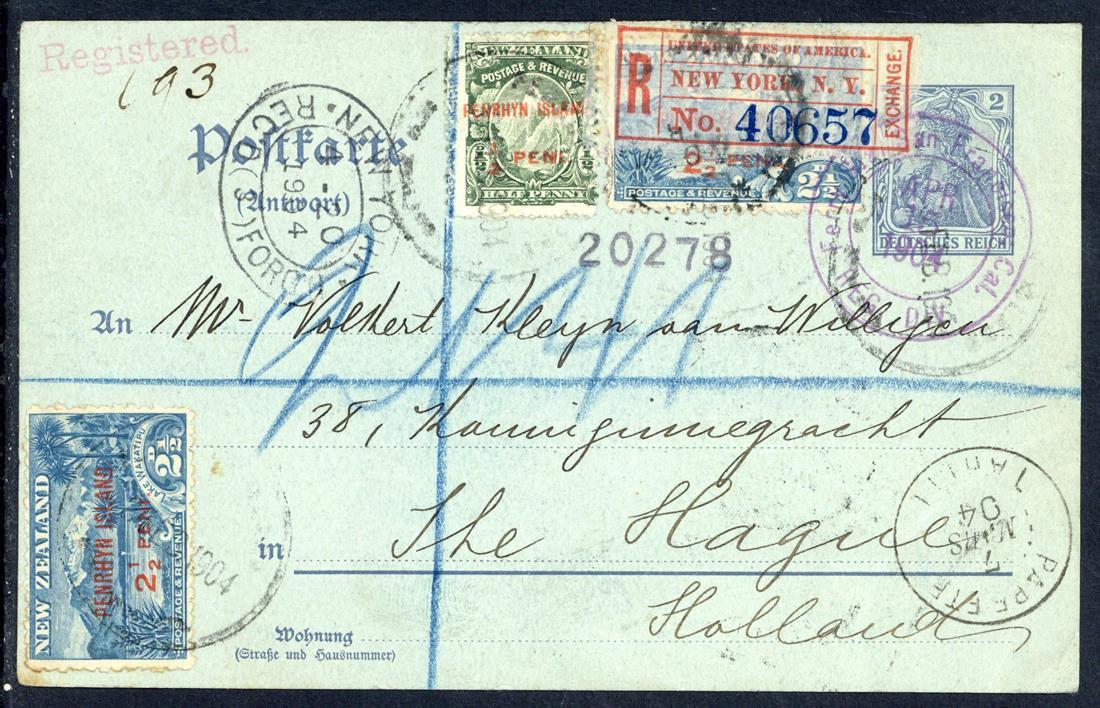 Registered.
193
Postkarte
(Antwort)
NEW YORK, N.Y. REG'D (S) FOR'D
1904
NEW ZEALAND
POSTAGE & REVENUE
PENRHYN ISLAND
½ PENI
HALF PENNY
R
UNITED STATES OF AMERICA.
NEW YORK, N. Y.
No. 40657
EXCHANGE.
2½ PENI
POSTAGE & REVENUE
2½
2
DEUTSCHES REICH
San Francisco, Cal.
APR
1904
REG. DIV.
20278
1904
An Mr Volkert Kleyn van Willigen
38, Konninginnegracht
in The Hague
Holland
Wohnung
(Straße und Hausnummer)
NEW ZEALAND
PENRHYN ISLAND
2½ PENI
LAKE WAKATIPU
2½
POSTAGE & REVENUE
1904
PAPEETE
7
MARS
04
TAHITI